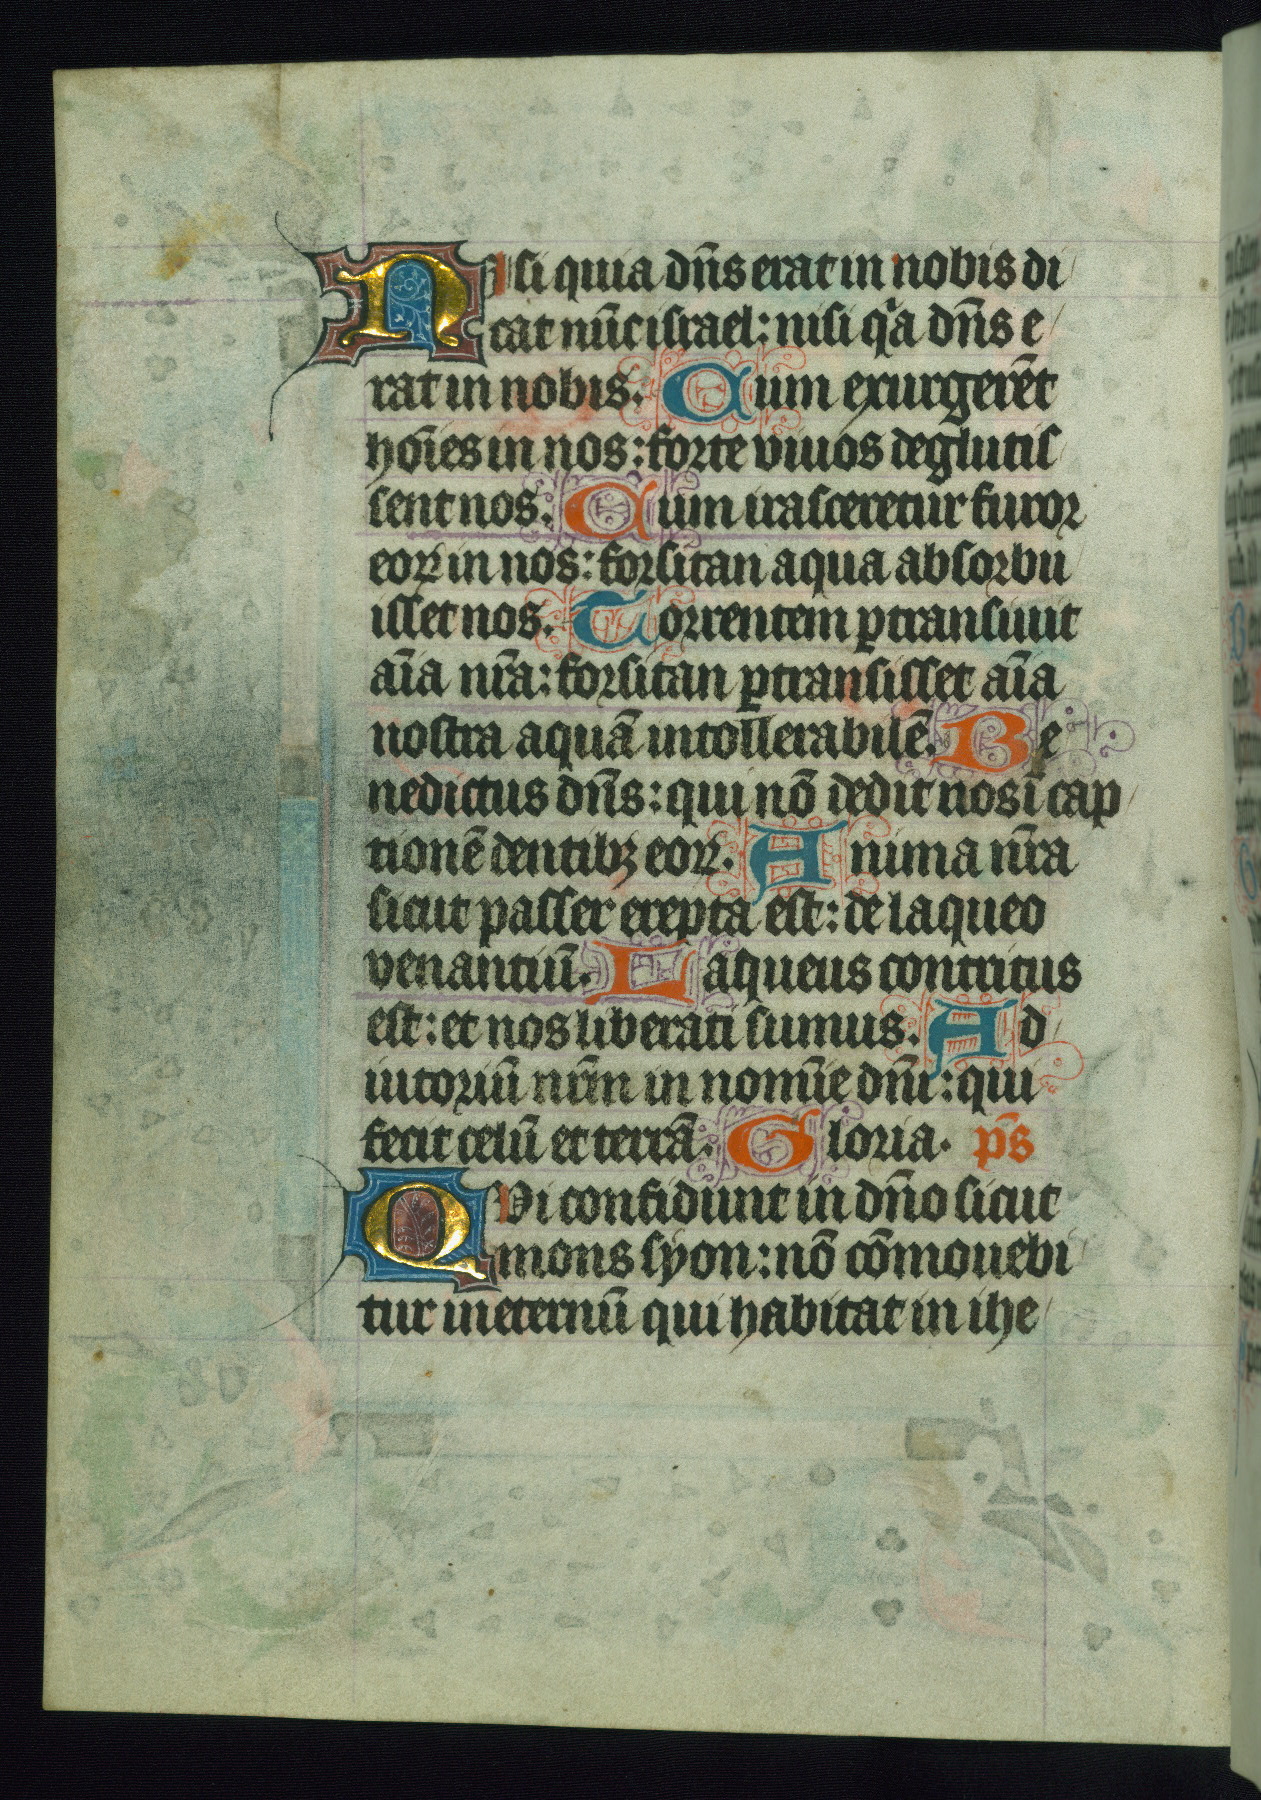 NIsi quia dn̄s erat in nobis di
cat nūc israel: nisi qͣa dn̄s e
rat in nobis. Cum exurgerēt
hoīes in nos: forte viuos deglutis
sent nos. Cum irasceretur furor
eoꝝ in nos: forsitan aqua absorbu
isset nos. Torrentem ꝑtransiuit
aīa nr̄a: forsitan ꝑtransisset aīa
nostra aquā intollerabilē. Be
nedictus dn̄s: qui nō dedit nos ī cap
tionē dentibꝫ eoꝝ. Anima nr̄a
sicut passer erepta est: de laqueo
venantiū. Laqueus contritus
est: et nos liberati sumus. Ad
iutoriū nr̄m in nomīe dn̄i: qui
fecit celū et terrā. Gloria. ps̄
QVi confidunt in dn̄o sicut
mons syon: nō cōmouebi
tur in eternū qui habitat in ihe